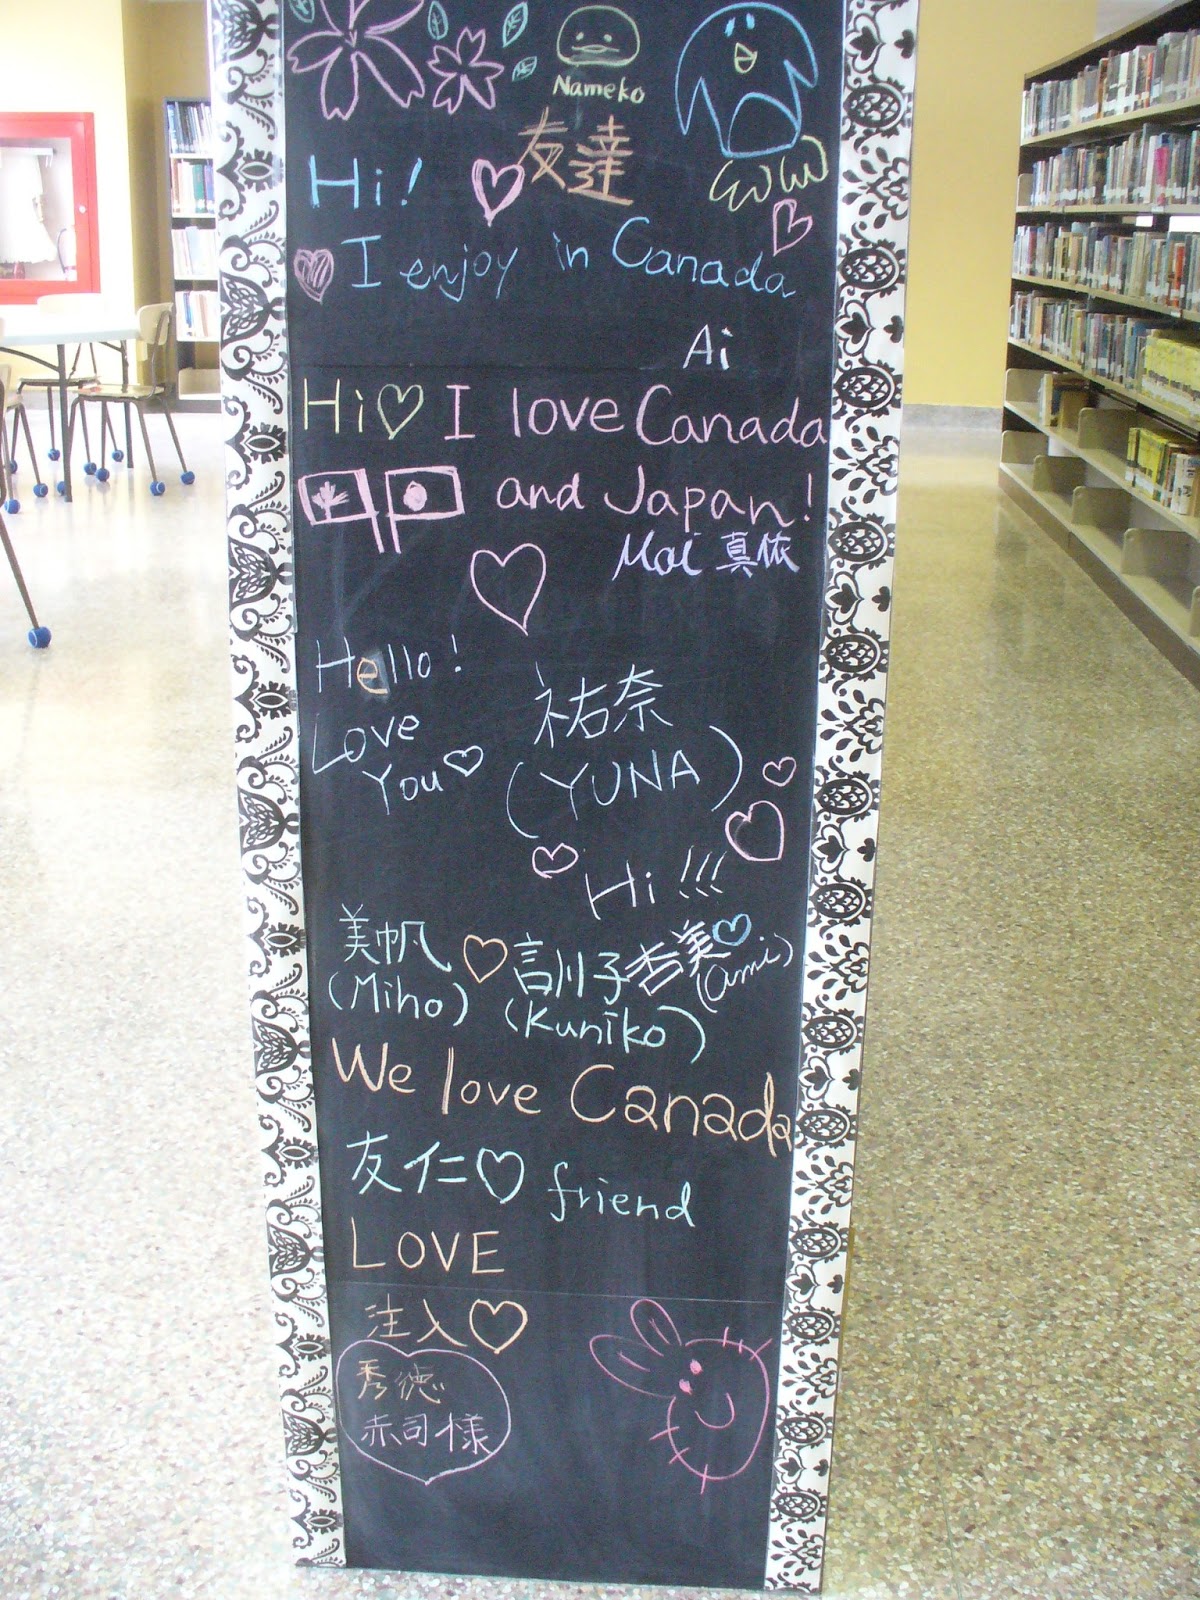 Nameko
友達
Hi!
I enjoy in Canada
Ai
Hi I love Canada
and Japan!
Mai 真依
Hello!
Love
You
祐奈
(YUNA)
Hi!!!
美帆 訓子 杏美
(Miho) (Kuniko) (ami)
We love Canada
友仁 friend
LOVE
注入
秀徳
赤司様